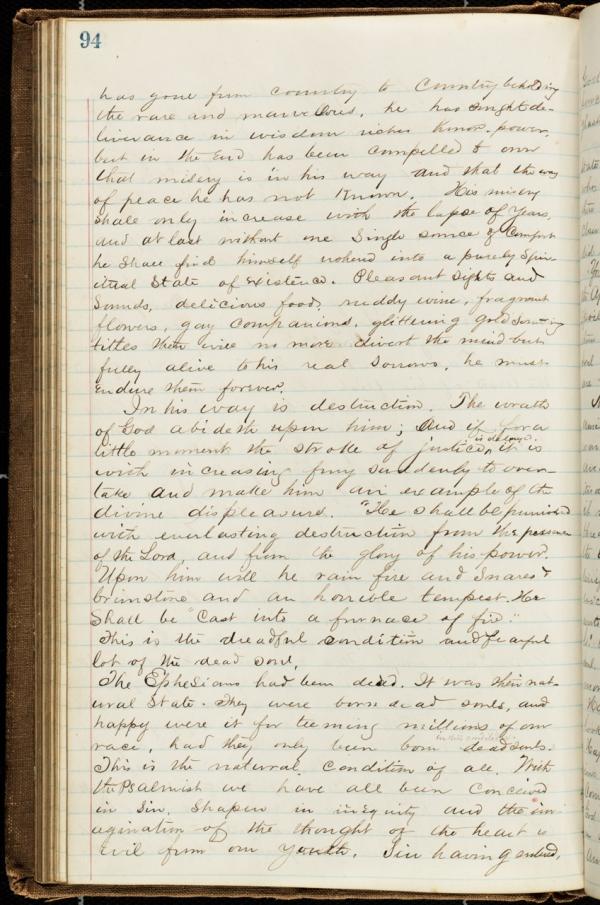 94
has gone from country to country beholding
the rare and marvelous, he has sought de-
liverance in wisdom riches honor-power,
but in the End has been compelled to own
that misery is in his way and that the way
of peace he has not Known. His misery
shall only increase with the lapse of Years,
and at last without one Single source of Comfort
he Shall find himself ushered into a purely Spir-
itual State of existence. Pleasant Sights and
Sounds, delicious food, ruddy wine, fragrant
flowers, gay companions, glittering gold
titles then will no more divert the mind but
fully alive to his real Sorrows, he must
Endure them forever.
In his way is destruction. The wrath
of God abideth upon him; And if for a
little moment the stroke of justice is delayed, it is
with increasing fury suddenly to over-
take and make him an example of the
divine displeasure. "He shall be punished
with everlasting destruction from the presence
of the Lord, and from the glory of his power.
Upon him will he rain fire and Snares &
brimstone and an horrible tempest. He
Shall be "Cast into a furnace of fire."
This is the dreadful condition and fearful
lot of the dead soul.
The Ephesians had been dead. It was their nat-
ural State. They were born dead souls, and
happy were it for teeming millions of our
race, had they only been born dead souls.
This is the natural Condition of all. With
the Psalmist we have all been Conceived
in Sin, Shapen in iniquity and the im-
agination of the thought of the heart is
Evil from our Youth. Sin having entered,